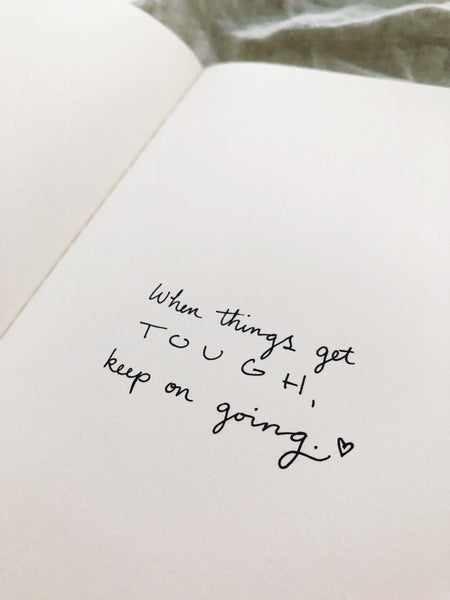 When things get
TOUGH,
keep on going. ♡